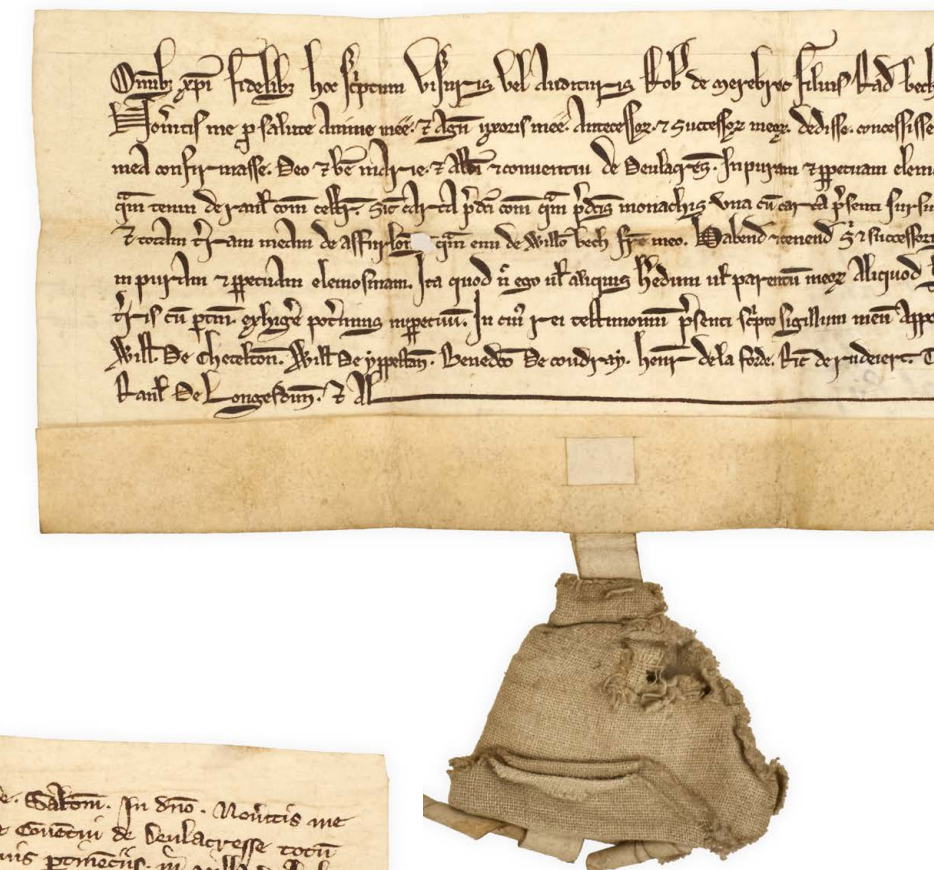 Omĩb; xp̃i fidelib; hoc sc̃ptum visuris vel audituris Rob̃ de merebroc filius Rad̃ bech
Nov̾itis me p̱ salute anime mee. ⁊ Agñ uxoris mee. Antecessoꝝ. ⁊ Successoꝝ meoꝝ. dedisse. concessisse
mea confirmasse. Deo ⁊ bẽ marie. ⁊ Abb̃i ⁊ conventui de Deulacres̃. In puram ⁊ p̱petuam elem
q̃m tenui de Ranł com̃ cestr̃. Sic carta p̃dc̃i com̃ q̃m p̃dc̃is monachis una cũ carta p̃senti
⁊ totam t̃ram meam de q̃m emi de Willo bech fr̃e meo. Habend̃ ⁊ tenend̃ s̃ ⁊ successori
in puram ⁊ p̱petuam elemosinam. Ita quod ñ ego ul̃ aliquis h̾edum ul̃ parentũ meoꝝ Aliquod
t̾ris cũ p̱tiñ. exhig̾e pot̾imus inp̱petuũ. In cuĩ rei testimonium p̃senti sc̃pto sigillum meũ Appo
Will̃. De Chetelton̄. Will̃ De yppestañ. Benedc̃o De coudray. henr̃ de la forde. Ric̃ de rudeierc̃. T
Ranł De Longesdun̄. ⁊ Al̃
e. Salt̃m. In dño. Nov̾itis me
Cõvẽtui de Deulacresse totũ
p̱tinẽciis. ĩ villa de